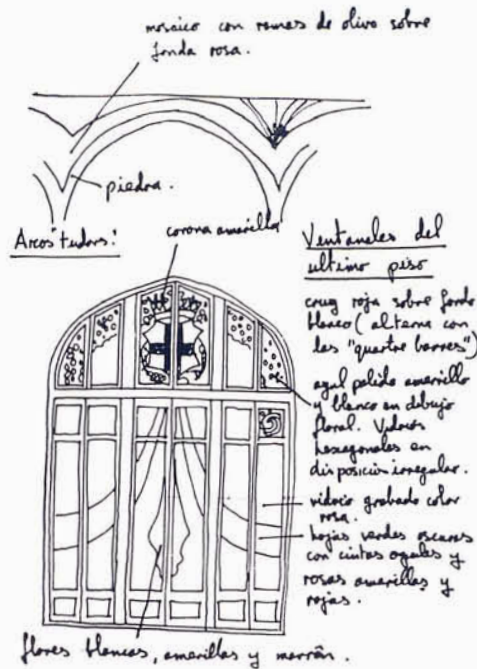 mosaico con ramas de olivo sobre
fonda rosa.
piedra.
Arcos "tudors":
corona amarilla
Ventanales del
ultimo piso
cruz roja sobre fondo
blanco (alterna con
las "quatre barres")
azul palido amarillo
y blanco en dibujo
floral. Vidrios
hexagonales en
disposición irregular.
vidrio grabado color
rosa.
hojas verdes oscuras
con cintas azules y
rosas amarillas y
rojas.
flores blancas, amarillas y marrón.